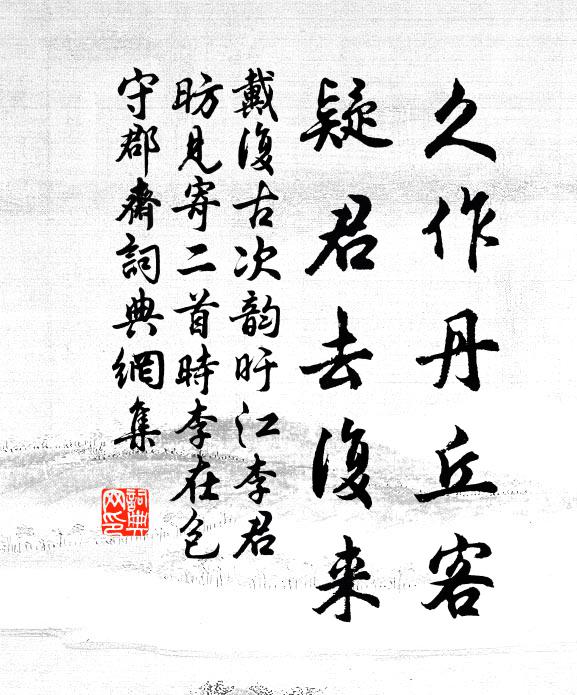 久作丹丘客
疑君去復来
戴復古次韵盱江李君
昉見寄二首時李在包
守郡齋詞典網集
詞典网印